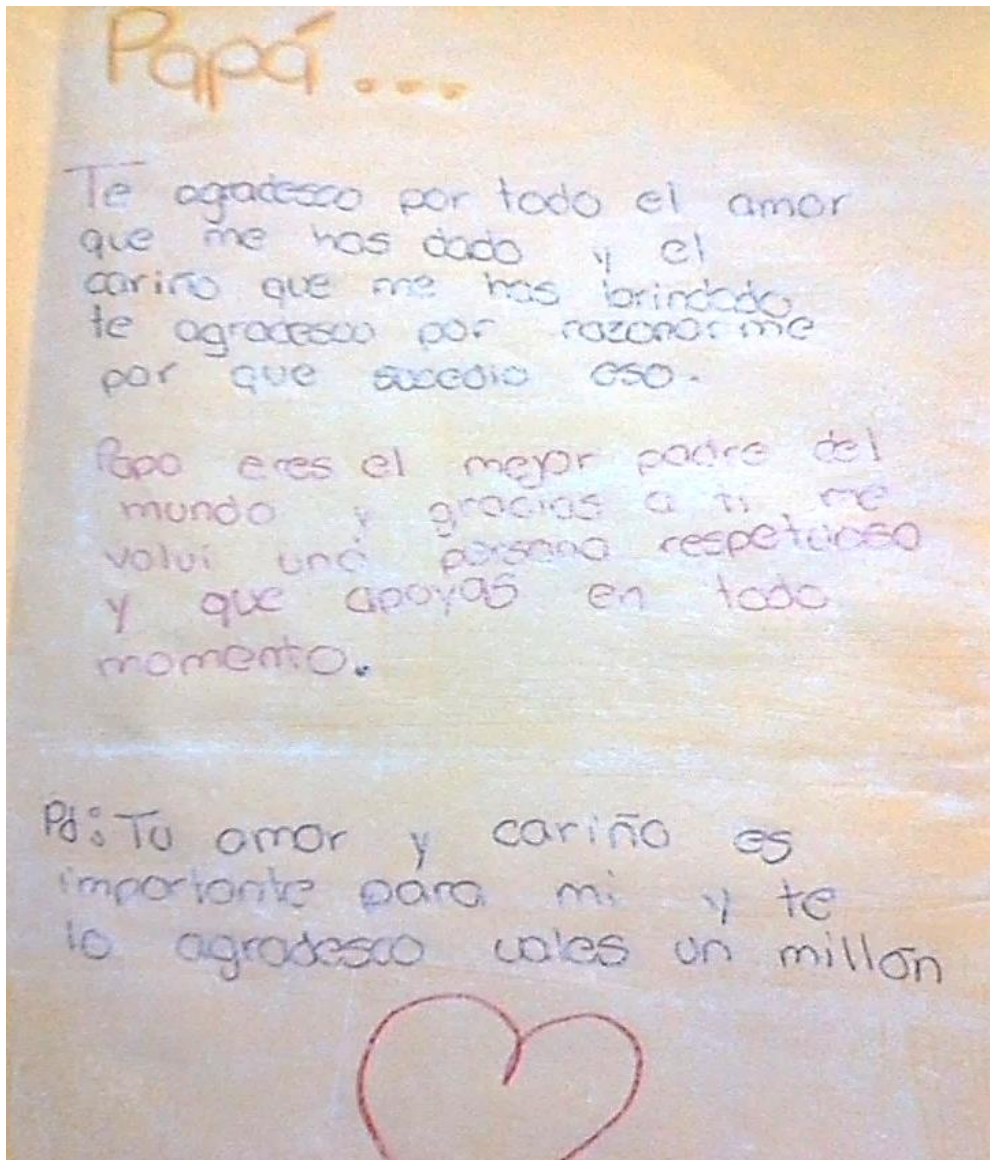 Papá...
Te agradesco por todo el amor
que me has dado y el
cariño que me has brindado
te agradesco por razonarme
por que sucedio eso.
Papa eres el mejor padre del
mundo y gracias a ti me
volvi una persona respetuosa
y que apoyas en todo
momento.
Pd: Tu amor y cariño es
importante para mi y te
lo agradesco vales un millón